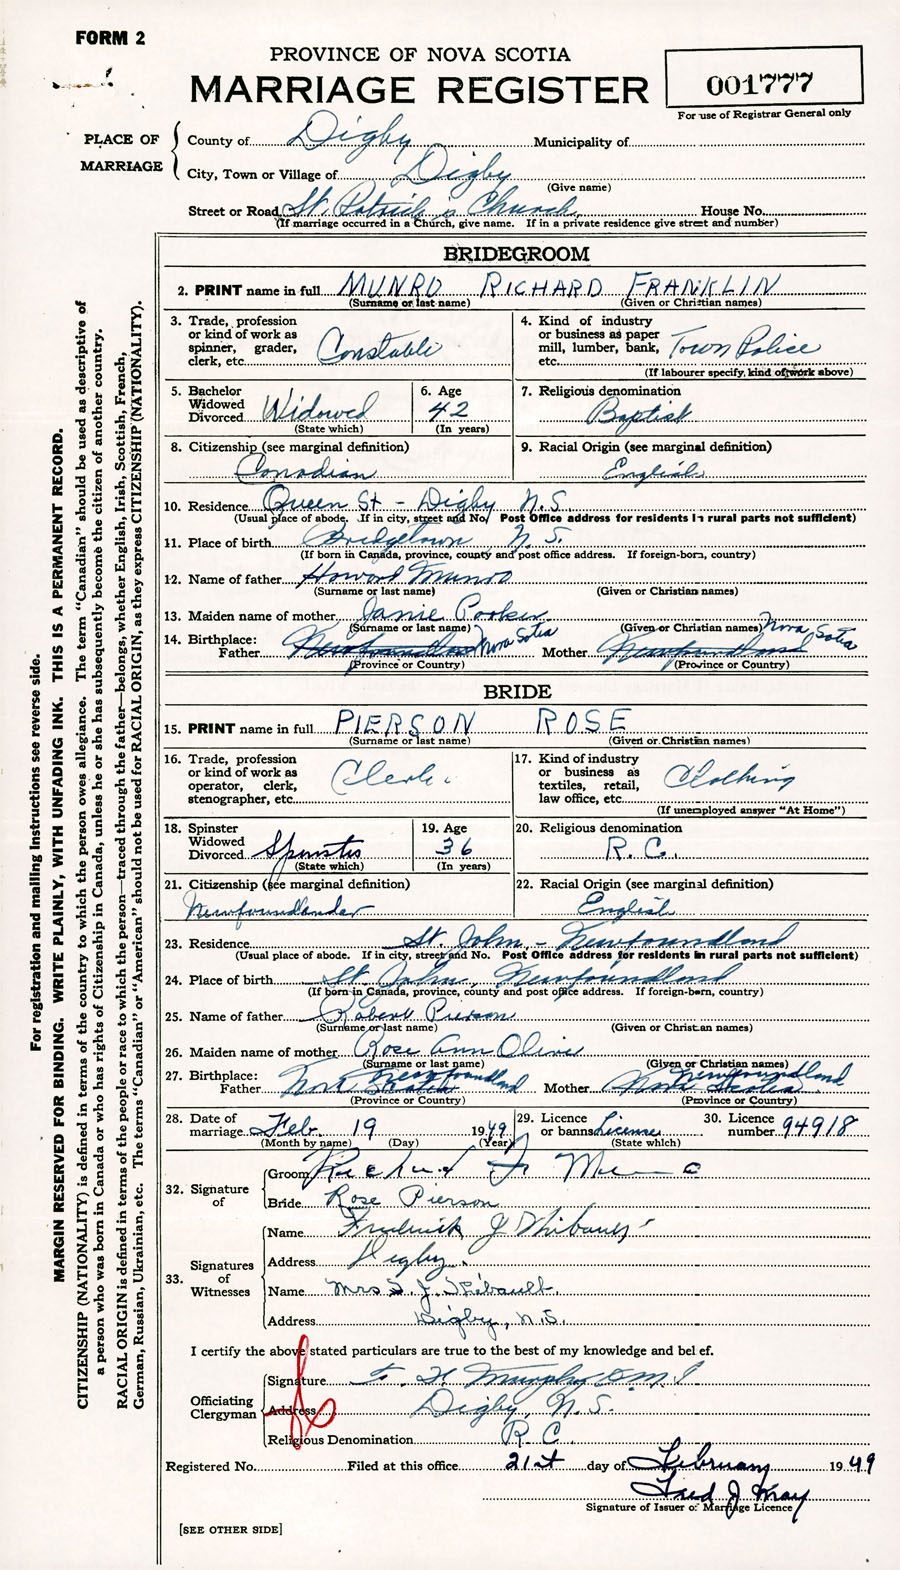 FORM 2
PROVINCE OF NOVA SCOTIA
MARRIAGE REGISTER
001777
For use of Registrar General only
PLACE OF MARRIAGE
County of Digby Municipality of
City, Town or Village of Digby
(Give name)
Street or Road St. Patrick's Church House No.
(If marriage occurred in a Church, give name. If in a private residence give street and number)
BRIDEGROOM
2. PRINT name in full MUNRO RICHARD FRANKLIN
(Surname or last name) (Given or Christian names)
3. Trade, profession or kind of work as spinner, grader, clerk, etc. Constable
4. Kind of industry or business as paper mill, lumber, bank, etc. Town Police
(If labourer specify, kind of work above)
5. Bachelor Widowed Divorced Widowed
(State which)
6. Age 42
(In years)
7. Religious denomination Baptist
8. Citizenship (see marginal definition) Canadian
9. Racial Origin (see marginal definition) English
10. Residence Queen St - Digby N.S.
(Usual place of abode. If in city, street and No. Post Office address for residents in rural parts not sufficient)
11. Place of birth Bridgetown N.S.
(If born in Canada, province, county and post office address. If foreign-born, country)
12. Name of father Howard Munro
(Surname or last name) (Given or Christian names)
13. Maiden name of mother Janie Porker
(Surname or last name) (Given or Christian names)
14. Birthplace: Father Newfoundland Nova Sotia Mother Newfoundland Nova Sotia
(Province or Country) (Province or Country)
BRIDE
15. PRINT name in full PIERSON ROSE
(Surname or last name) (Given or Christian names)
16. Trade, profession or kind of work as operator, clerk, stenographer, etc. Clerk
17. Kind of industry or business as textiles, retail, law office, etc. Clothing
(If unemployed answer "At Home")
18. Spinster Widowed Divorced Spinster
(State which)
19. Age 36
(In years)
20. Religious denomination R.C.
21. Citizenship (see marginal definition) Newfoundlander
22. Racial Origin (see marginal definition) English
23. Residence St. John, - Newfoundland
(Usual place of abode. If in city, street and No. Post Office address for residents in rural parts not sufficient)
24. Place of birth St John, Newfoundland
(If born in Canada, province, county and post office address. If foreign-born, country)
25. Name of father Robert Pierson
(Surname or last name) (Given or Christian names)
26. Maiden name of mother Rose Ann Oliver
(Surname or last name) (Given or Christian names)
27. Birthplace: Father Nova Scotia Newfoundland Mother Nova Scotia Newfoundland
(Province or Country) (Province or Country)
28. Date of marriage Feb. 19 1949
(Month by name) (Day) (Year)
29. Licence or banns License
(State which)
30. Licence number 94918
32. Signature of
Groom Richard F Munro
Bride Rose Pierson
33. Signatures of Witnesses
Name Frederick J Thibault
Address Digby
Name Mrs F. J. Thibault
Address Digby, N.S.
I certify the above stated particulars are true to the best of my knowledge and belief.
Officiating Clergyman
Signature Murphy
Address Digby, N.S.
Religious Denomination R C
Registered No. Filed at this office 21st day of February 1949
Fred J May
Signature of Issuer of Marriage Licence
[SEE OTHER SIDE]
For registration and mailing instructions see reverse side.
MARGIN RESERVED FOR BINDING. WRITE PLAINLY, WITH UNFADING INK. THIS IS A PERMANENT RECORD.
CITIZENSHIP (NATIONALITY) is defined in terms of the country to which the person owes allegiance. The term "Canadian" should be used as descriptive of
a person who was born in Canada or who has rights of Citizenship in Canada, unless he or she has subsequently become the citizen of another country.
RACIAL ORIGIN is defined in terms of the people or race to which the person—traced through the father—belongs, whether English, Irish, Scottish, French,
German, Russian, Ukrainian, etc. The terms "Canadian" or "American" should not be used for RACIAL ORIGIN, as they express CITIZENSHIP (NATIONALITY).